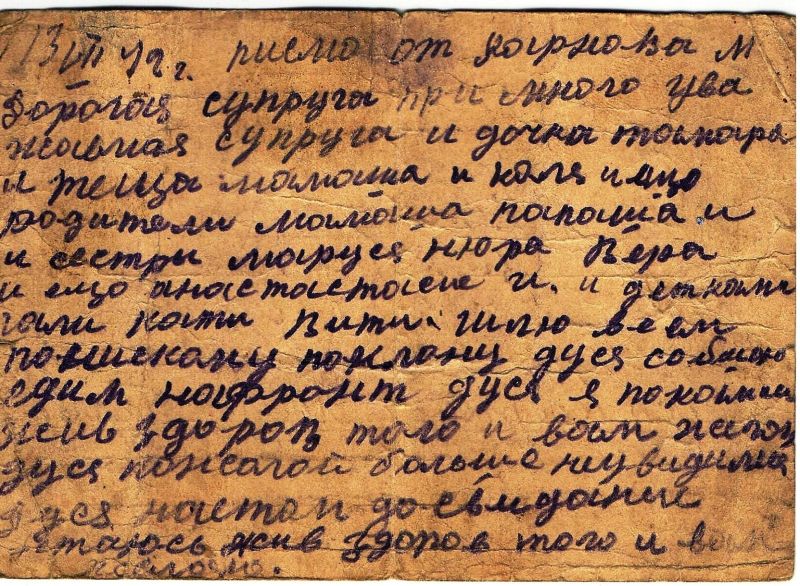 13 VII 42 г. писмо от М
Дорогая супруга при много ува
жаемая супруга и дочка тамара
и теща мамаша и каля ищо
родители мамаша папаша и
и сестри маруся нюра Вера
и ищо анастастасие и. и детками
гали кати Вити. шлю всем
понискану поклону дуся собщаю
едим нафронт дуся я покаместь
жив здоров того и вам желаю
дуся пожалой больше неувидимся
дуся настоп досвидание
астаюсь жив здоров того и вам